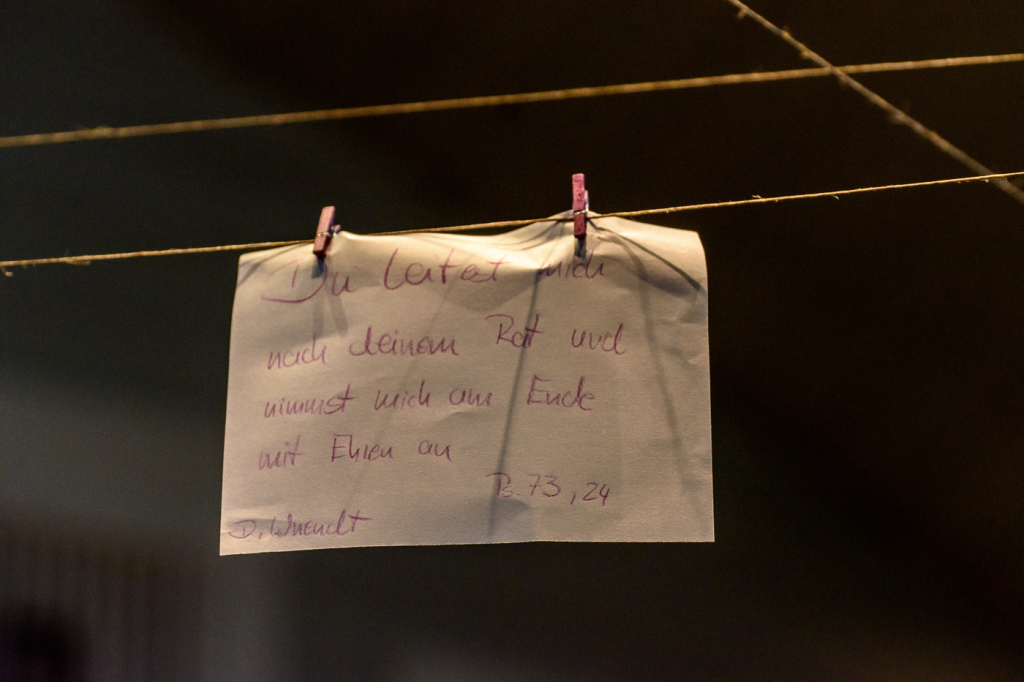 Du leitest mich
nach deinem Rat und
nimmst mich am Ende
mit Ehren an
Ps. 73, 24
D.